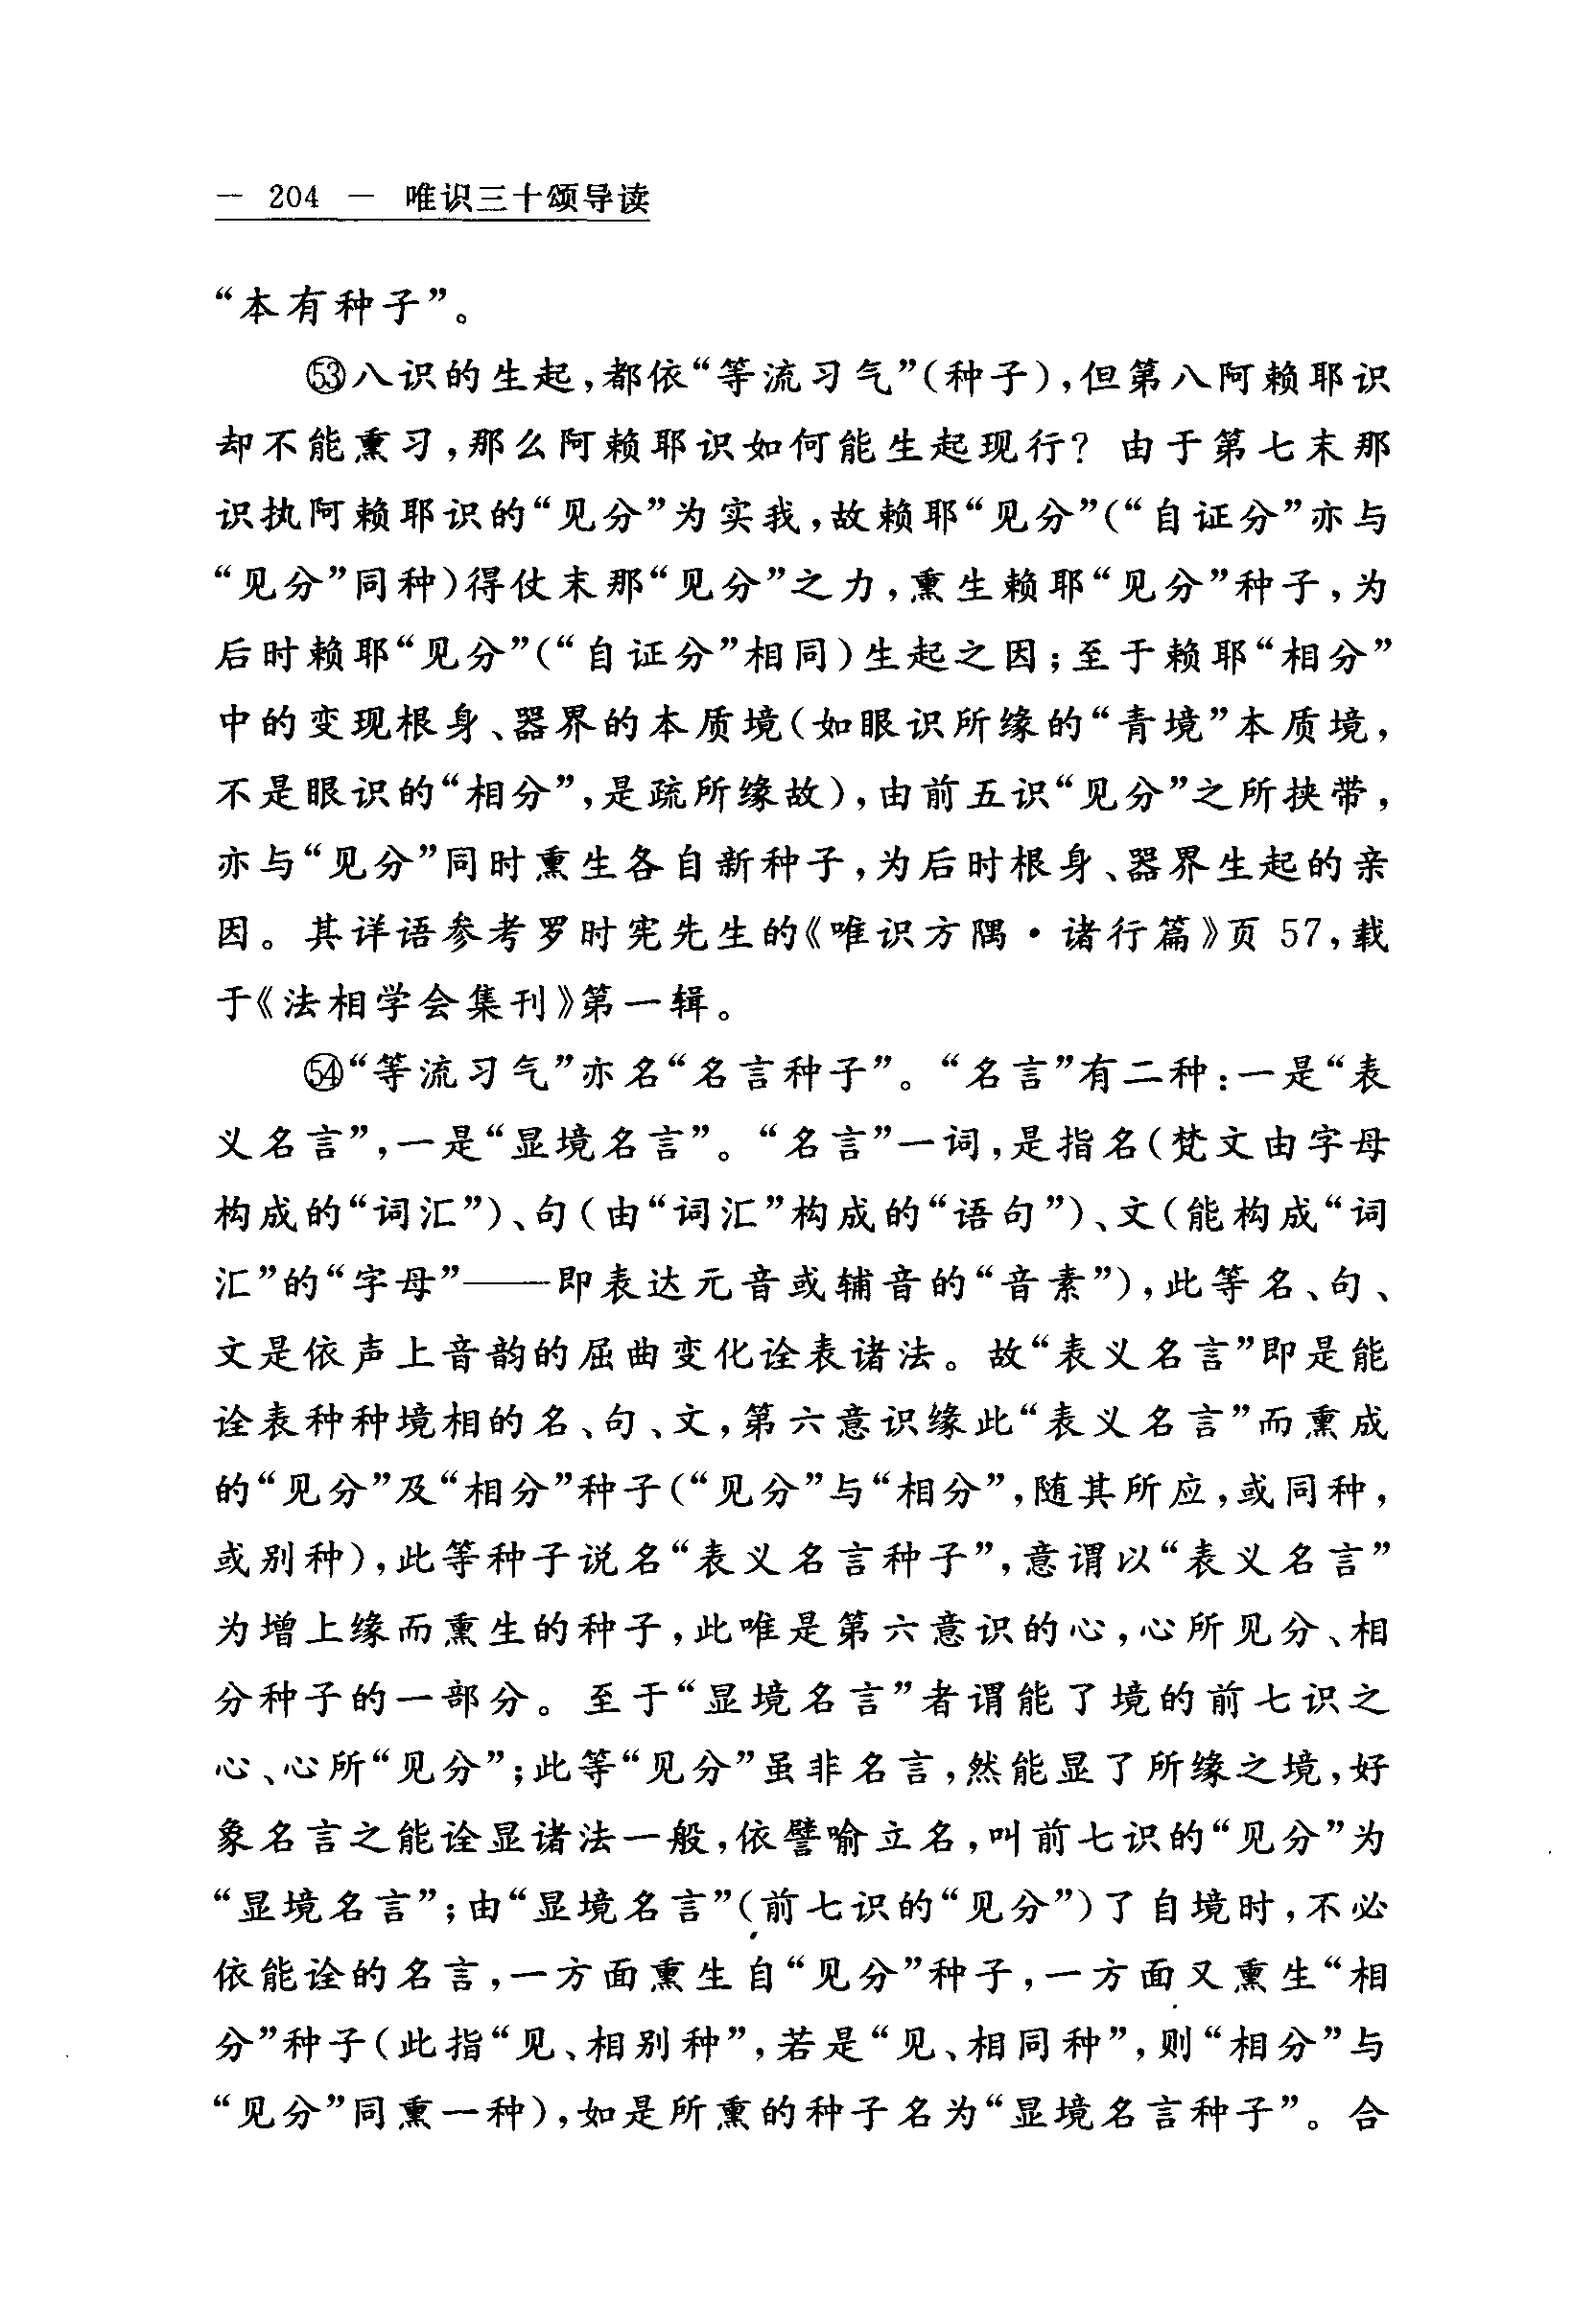 — 204 — 唯识三十颂导读
“本有种子”。
㊾八识的生起,都依“等流习气”(种子),但第八阿赖耶识
却不能熏习,那么阿赖耶识如何能生起现行? 由于第七末那
识执阿赖耶识的“见分”为实我,故赖耶“见分”(“自证分”亦与
“见分”同种)得仗末那“见分”之力,熏生赖耶“见分”种子,为
后时赖耶“见分”(“自证分”相同)生起之因;至于赖耶“相分”
中的变现根身、器界的本质境(如眼识所缘的“青境”本质境,
不是眼识的“相分”,是疏所缘故),由前五识“见分”之所挟带,
亦与“见分”同时熏生各自新种子,为后时根身、器界生起的亲
因。其详语参考罗时宪先生的《唯识方隅·诸行篇》页 57,载
于《法相学会集刊》第一辑。
54“等流习气”亦名“名言种子”。“名言”有二种:一是“表
义名言”,一是“显境名言”。“名言”一词,是指名(梵文由字母
构成的“词汇”)、句(由“词汇”构成的“语句”)、文(能构成“词
汇”的“字母”——即表达元音或辅音的“音素”),此等名、句、
文是依声上音韵的屈曲变化诠表诸法。故“表义名言”即是能
诠表种种境相的名、句、文,第六意识缘此“表义名言”而熏成
的“见分”及“相分”种子(“见分”与“相分”,随其所应,或同种,
或别种),此等种子说名“表义名言种子”,意谓以“表义名言”
为增上缘而熏生的种子,此唯是第六意识的心,心所见分、相
分种子的一部分。至于“显境名言”者谓能了境的前七识之
心、心所“见分”;此等“见分”虽非名言,然能显了所缘之境,好
象名言之能诠显诸法一般,依譬喻立名,叫前七识的“见分”为
“显境名言”;由“显境名言”(前七识的“见分”)了自境时,不必
依能诠的名言,一方面熏生自“见分”种子,一方面又熏生“相
分”种子(此指“见、相别种”,若是“见、相同种”,则“相分”与
“见分”同熏一种),如是所熏的种子名为“显境名言种子”。合